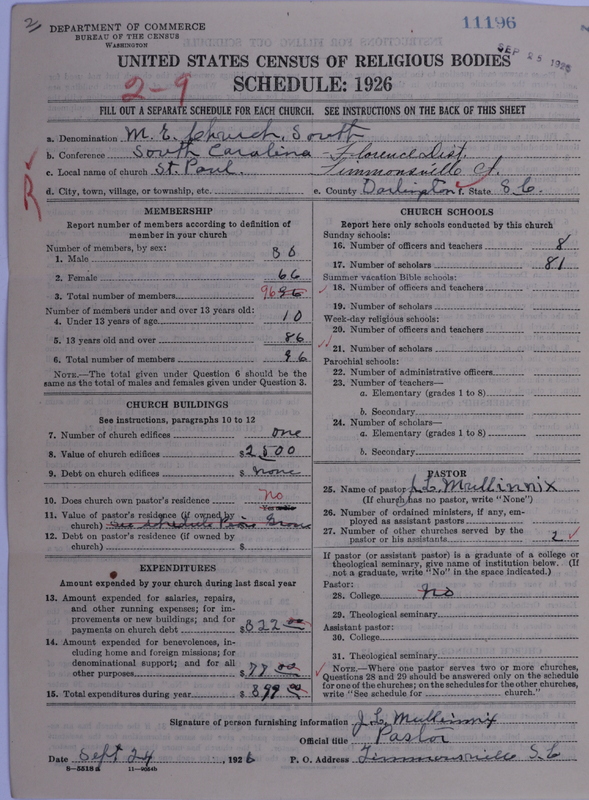 2
DEPARTMENT OF COMMERCE
BUREAU OF THE CENSUS
WASHINGTON
11196
SEP 25 1926
UNITED STATES CENSUS OF RELIGIOUS BODIES
2-9 SCHEDULE: 1926
FILL OUT A SEPARATE SCHEDULE FOR EACH CHURCH. SEE INSTRUCTIONS ON THE BACK OF THIS SHEET
a. Denomination M. E. Church, South
b. Conference South Carolina - Florence Dist.
c. Local name of church St. Paul. Timmonsville Ct.
R
d. City, town, village, or township, etc. e. County Darlington f. State S.C.
MEMBERSHIP
Report number of members according to definition of member in your church
Number of members, by sex:
1. Male 30
2. Female 66
3. Total number of members 96 96
Number of members under and over 13 years old:
4. Under 13 years of age 10
5. 13 years old and over 86
6. Total number of members 96
NOTE.—The total given under Question 6 should be the
same as the total of males and females given under Question 3.
CHURCH BUILDINGS
See instructions, paragraphs 10 to 12
7. Number of church edifices one
8. Value of church edifices $2500
9. Debt on church edifices $ none
10. Does church own pastor's residence no
11. Value of pastor's residence (if owned by
church) See schedule Pine Grove
12. Debt on pastor's residence (if owned by
church) $
EXPENDITURES
Amount expended by your church during last fiscal year
13. Amount expended for salaries, repairs,
and other running expenses; for im-
provements or new buildings; and for
payments on church debt $822.00
14. Amount expended for benevolences, in-
cluding home and foreign missions; for
denominational support; and for all
other purposes $77.00
15. Total expenditures during year $899.00
CHURCH SCHOOLS
Report here only schools conducted by this church
Sunday schools:
16. Number of officers and teachers 8
17. Number of scholars 81
Summer vacation Bible schools:
18. Number of officers and teachers
19. Number of scholars
Week-day religious schools:
20. Number of officers and teachers
21. Number of scholars
Parochial schools:
22. Number of administrative officers
23. Number of teachers—
a. Elementary (grades 1 to 8)
b. Secondary
24. Number of scholars—
a. Elementary (grades 1 to 8)
b. Secondary
PASTOR
25. Name of pastor J. L. Mullinnix
(If church has no pastor, write "None")
26. Number of ordained ministers, if any, em-
ployed as assistant pastors
27. Number of other churches served by the
pastor or his assistants 2
If pastor (or assistant pastor) is a graduate of a college or
theological seminary, give name of institution below. (If
not a graduate, write "No" in the space indicated.)
Pastor:
28. College No
29. Theological seminary
Assistant pastor:
30. College
31. Theological seminary
NOTE.—Where one pastor serves two or more churches,
Questions 28 and 29 should be answered only on the schedule
for one of the churches; on the schedules for the other churches,
write "See schedule for church."
Signature of person furnishing information J. L. Mullinnix
Official title Pastor
Date Sept 24, 1926 P. O. Address Timmonsville S.C.
8—5518a 11—9084b